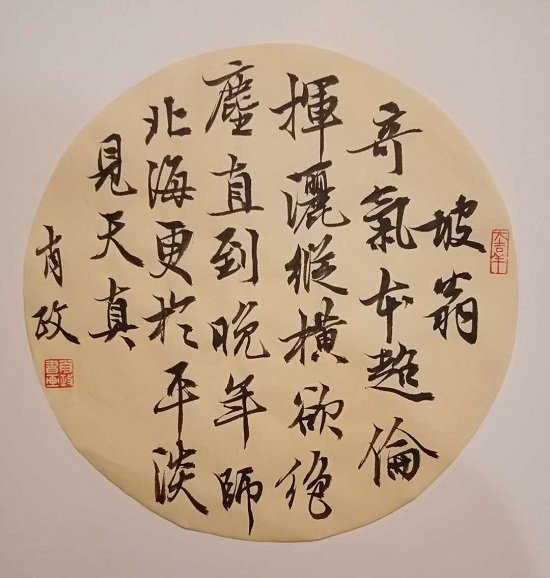 坡翁
奇氣本超倫
揮灑縱橫欲絶
塵直到晚年師
北海更於平淡
見天真
肖政
大吉年